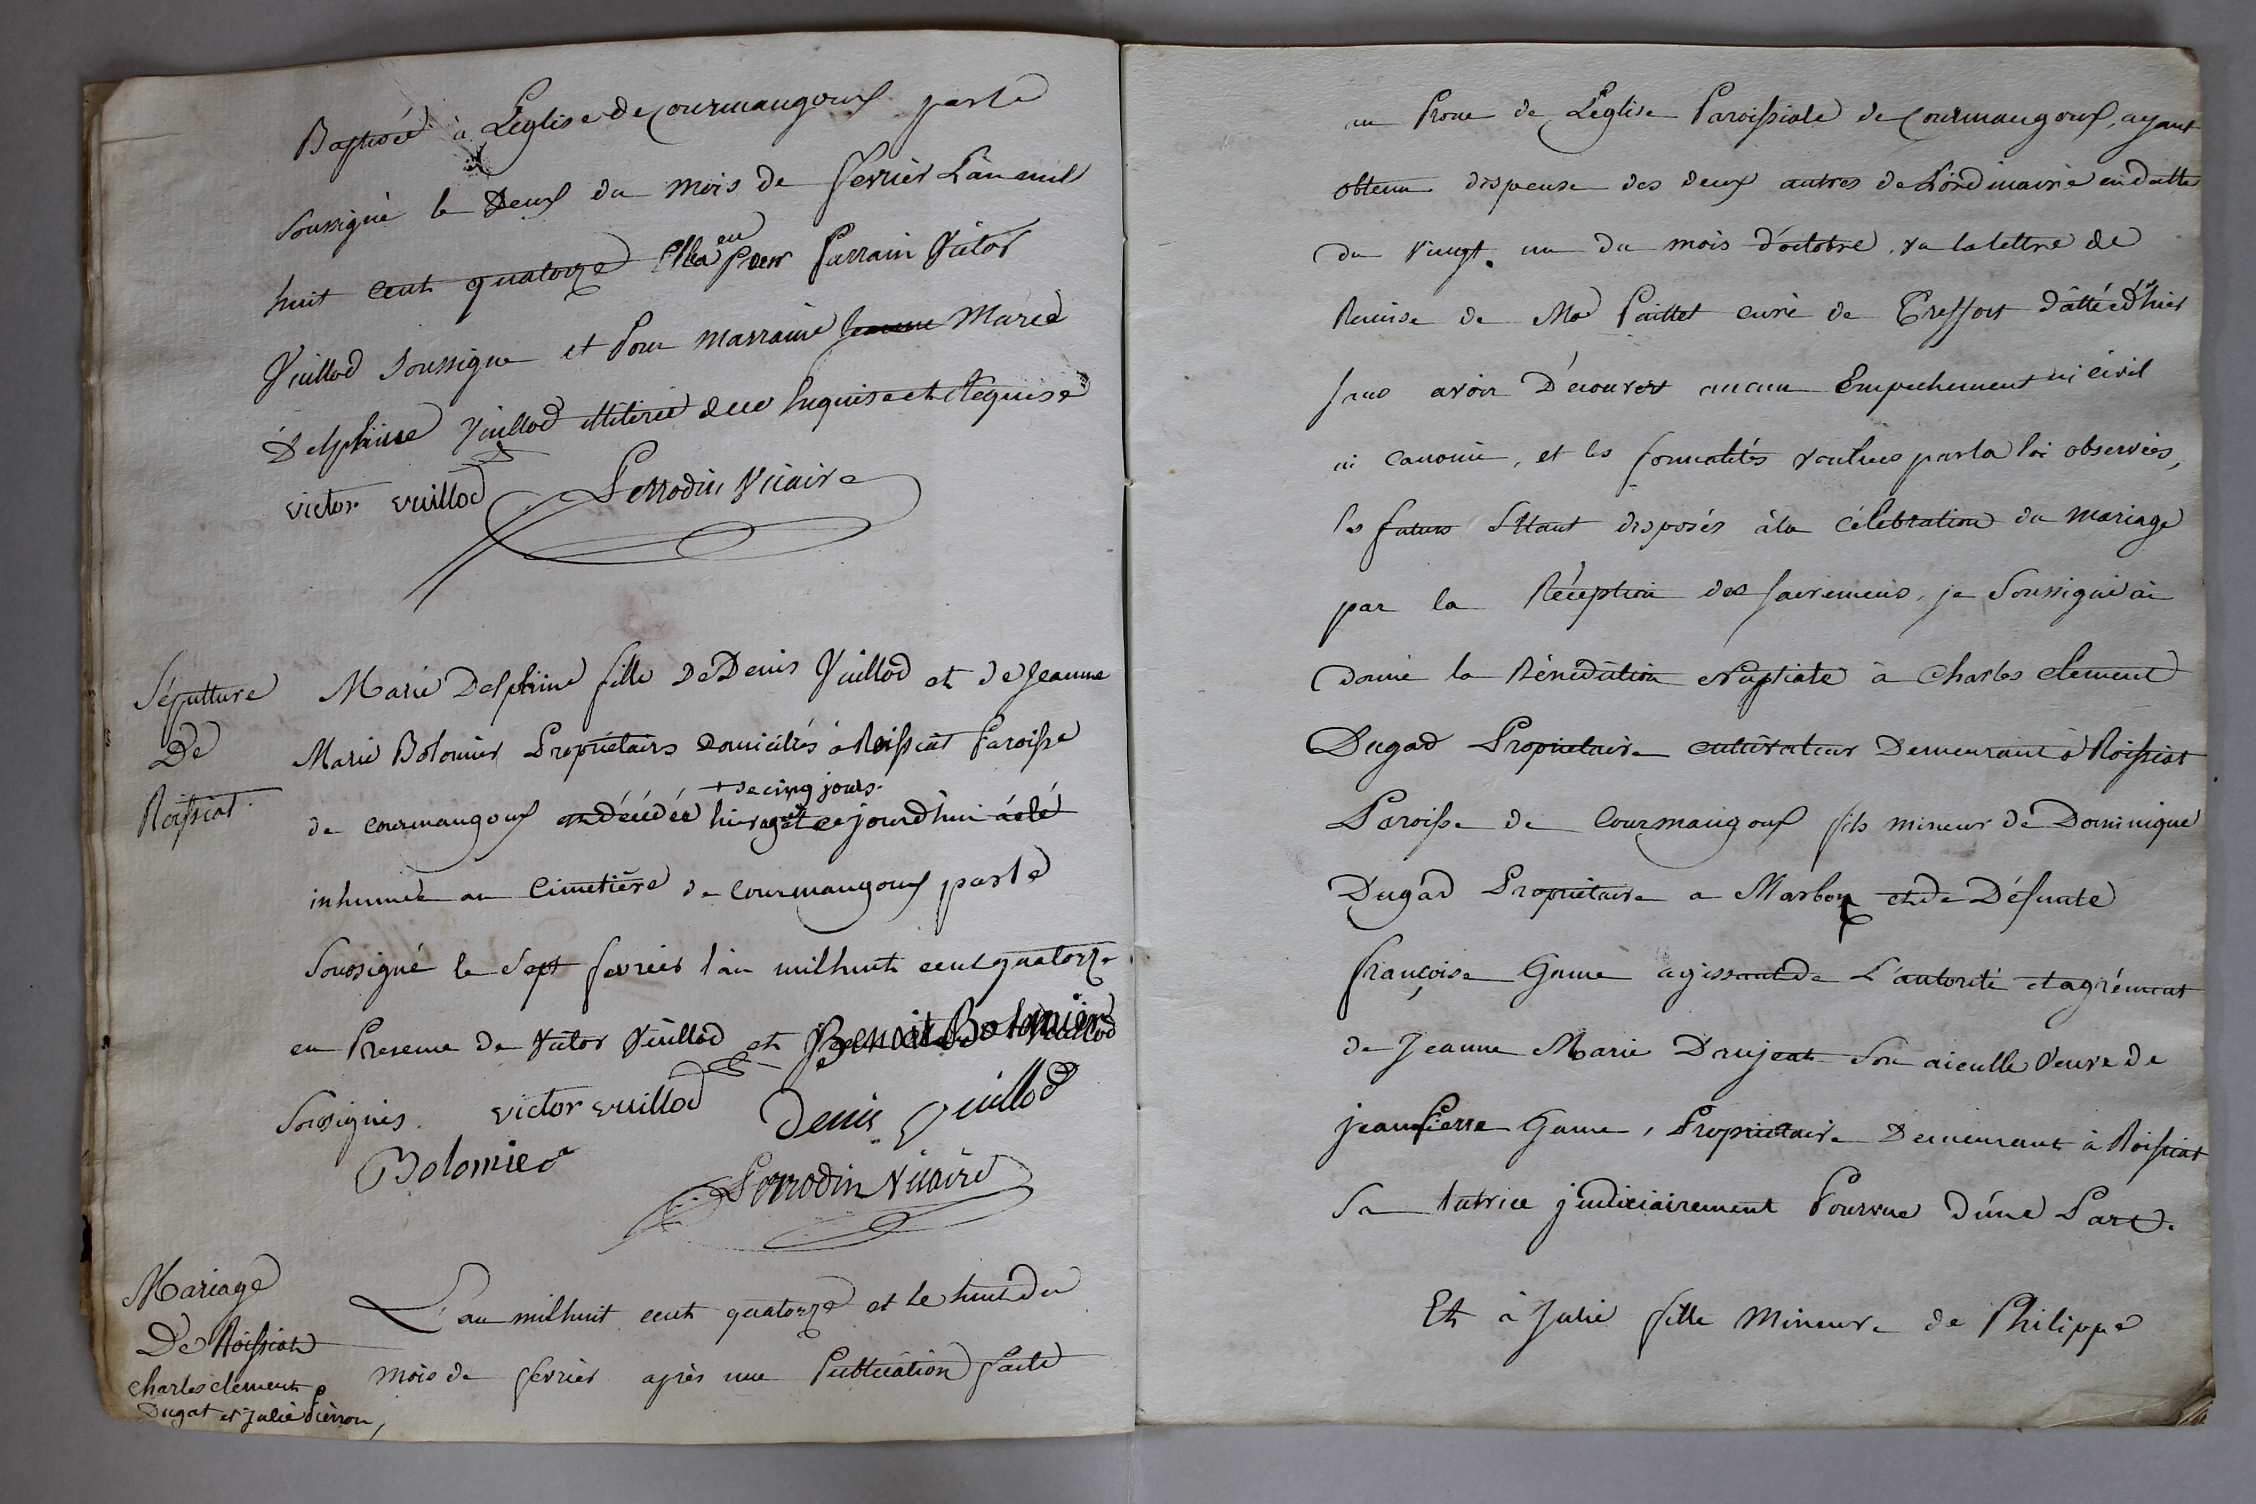 Baptisée à L'église de Courmangoux par le
soussigné le Deux du mois de fevrier L'an mil
huit cent quatorze Elle a eu Pour Parrain Victor
Vuillod soussigne et Pour marraine Jeanne Marie
Delphine Vuillod illitirée Enquise et Requise
victor vuillod Perrodin Vicaire
Sépulture
De
Roissiat.
Marie Delphine fille de Denis Vuillod et de Jeanne
Marie Bolomier Propriétaires Domiciliés à Roissiat Paroisse
+ de cinq jours.
de courmangoux décédée hier agée ce jourd'hui a été
inhumée au Cimetière de Courmangoux par le
Soussigné le sept fevrier l'an mil huit cent quatorze
en Presence de Victor Vuillod et Benoit Bolomier
Soussignés. victor vuillod Denis Vuillod
Bolomier Perrodin Vicaire
Mariage
De Roissiat
charles clement
Dugat et Julie Pierron,
L'an mil huit cent quatorze et le huit du
mois de fevrier après une Publication faite
au Prone de L'église Paroissiale de Courmangoux, ayant
obtenu dispense des deux autres de L'ordinaire en datte
du vingt un du mois d'octobre, vu la lettre de
Remise de Mr Paillet curé de Treffort dattée d'hier
sans avoir Découvert aucun Empechement ni civil
ni canonic, et les formalités voulues par la loi observées,
les futurs S'étant disposés à la célebration du mariage
par la Réception des sacremens, je Soussigné ai
donné la Bénédiction Nuptiale à Charles clement
Dugad Propriétaire cultivateur Demeurant à Roissiat
Paroisse de Courmangoux fils mineur de Dominique
Dugad Propriétaire a Marboz et de Défunte
françoise Game agissant de L'autorité et agrément
de Jeanne Marie Draujeat Son aieulle Veuve de
jean Pierre Game, Propriétaire Demeurant à Roissiat
Sa tutrice judiciairement Pourvue D'une Part.
Et à Julie fille Mineure de Philippe